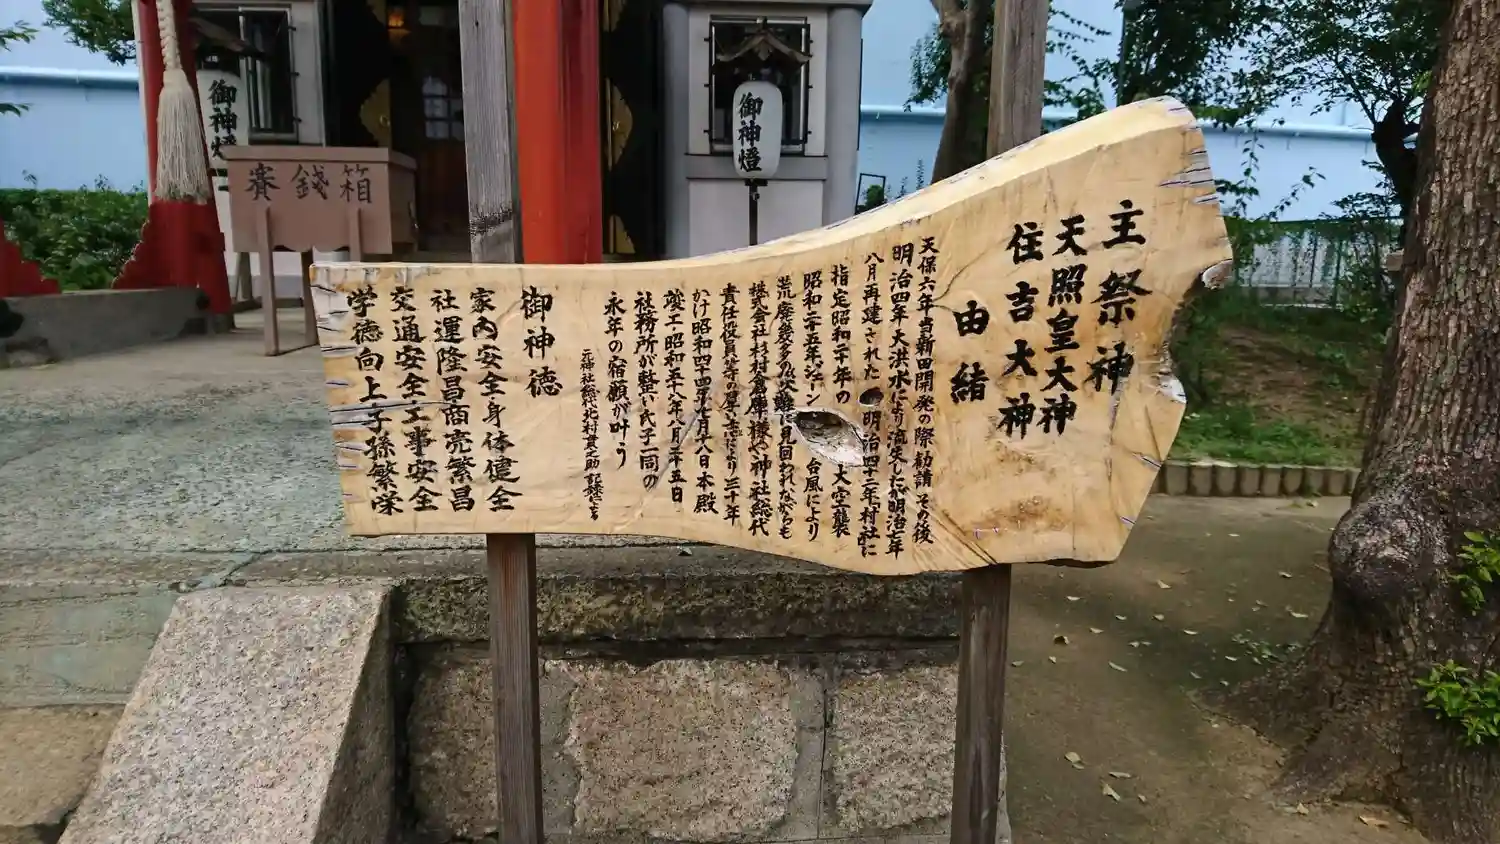 主祭神
天照皇大神
住吉大神
由緒
天保六年当新田開発の際勧請その後
明治四年大洪水により流失したが明治七年
八月再建された 明治四十二年「村社」に
指定昭和二十年の 大空襲
昭和二十五年、ジェーン 台風により
荒廃幾多の災難に見回われながらも
株式会社杉村倉庫様や神社総代
責任役員等の厚志により三十年
かけ昭和四十四年七月十八日本殿
竣工・昭和五十八年八月二十五日
社務所が整い氏子一同の
永年の宿願が叶う
元神社総代北村貫之助 記録による
御神徳
家内安全身体健全
社運隆昌商売繁昌
交通安全工事安全
学徳向上子孫繁栄
御神燈
賽銭箱
御神燈